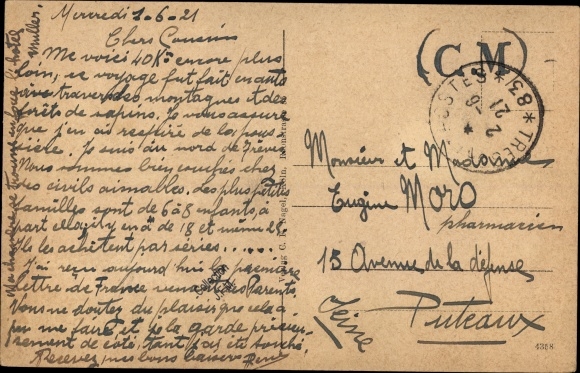 Mercredi 1-6-21
Chers Cousins
Me voici 40 Km encore plus
loin, ce voyage fut fait en auto
à travers des montagnes et des
forêts de sapins. Je vous assure
que j'en ai respiré de la pous
sière. Je suis au nord de Trèves
Nous sommes bien couchés chez
des civils aimables. des plus petites
familles sont de 6 à 8 enfants, à
part ella il y en a de 18 et même 21
Ils les achètent par séries......
J'ai reçu aujourd'hui la première
lettre de France venant des Parents.
Vous ne doutez du plaisir que cela a
pu me faire et je la garde précieu-
sement de côté, tant j'ai été touché.
Recevez mes bons baisers René
Ma chambre se trouve en face l'hôtel
Muller.
(C.M)
POSTES
* 83 *
2 -6
21
Monsieur et Madame
Eugène Moro
pharmacien
15 Avenue de la défense
Puteaux
Seine
4358